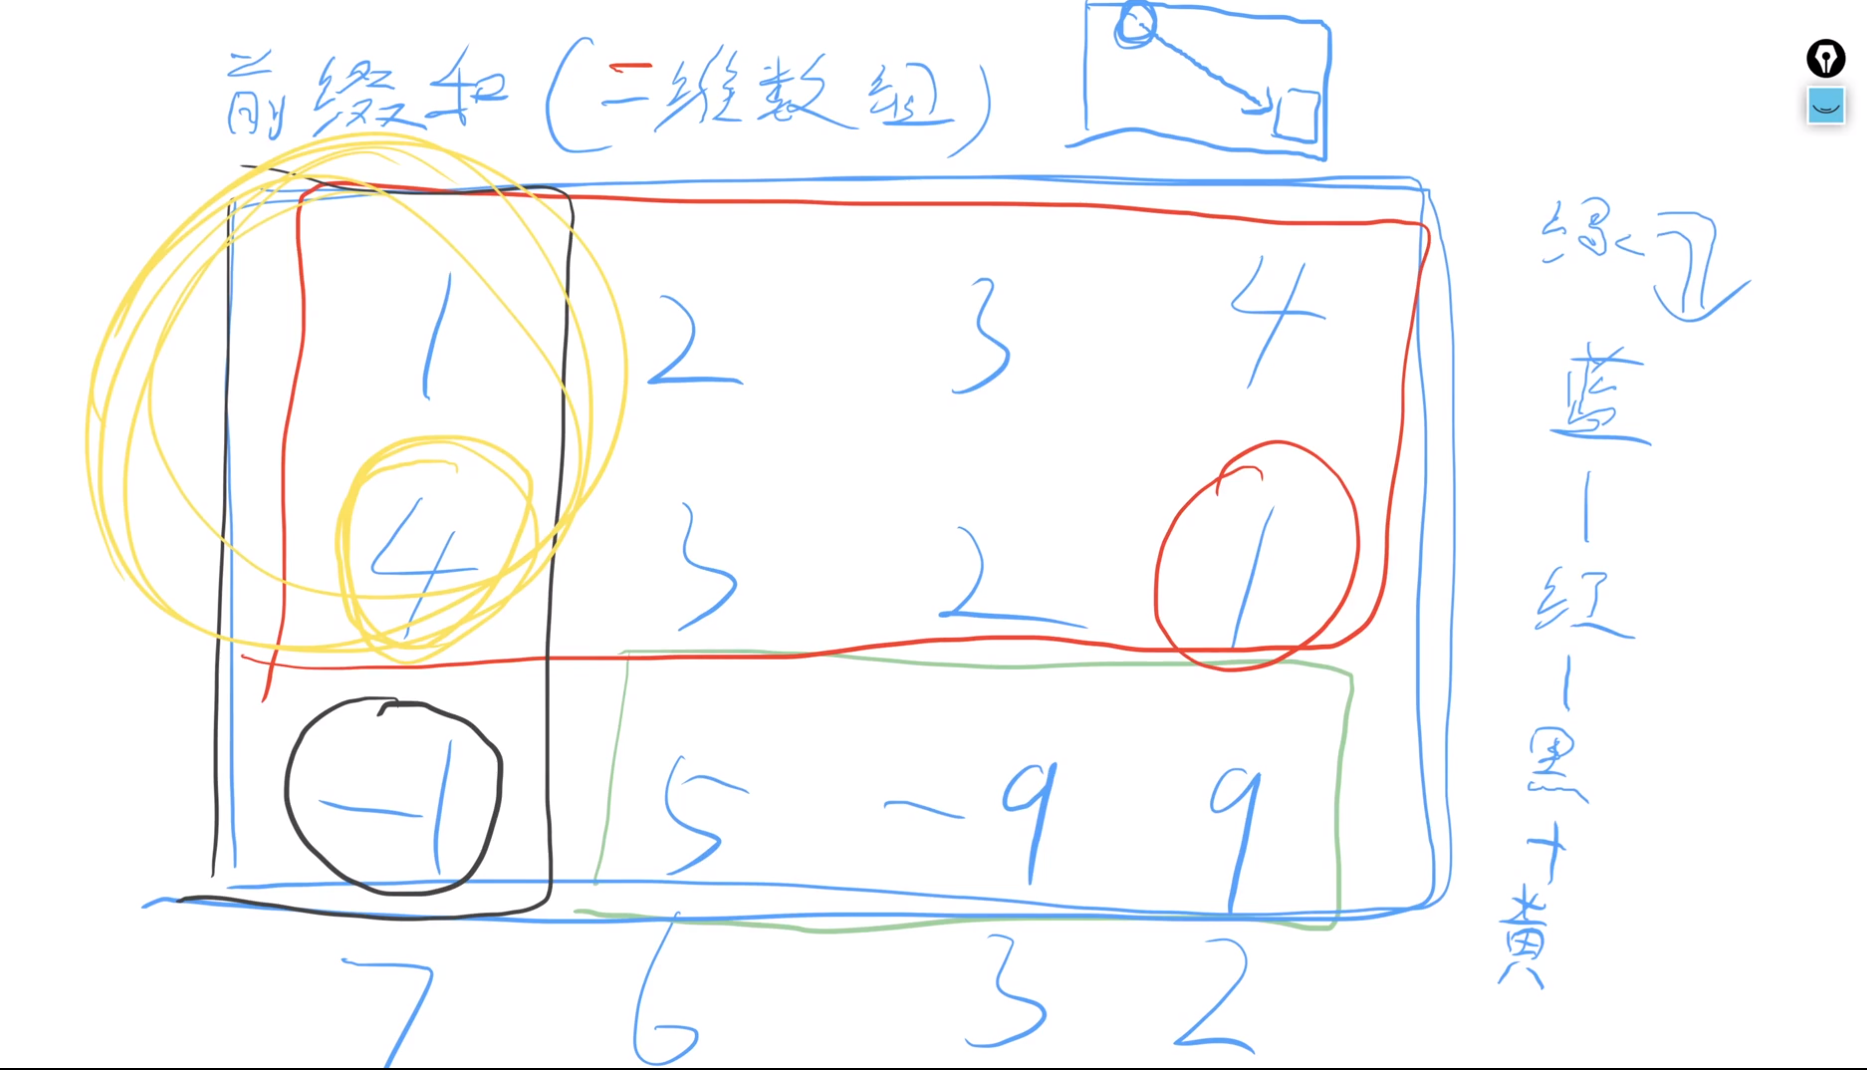 前缀和(二维数组)
1 2 3 4
4 3 2 1
-1 5 -9 9
7 6 3 2
绿
蓝
-
红
-
黑
+
黄